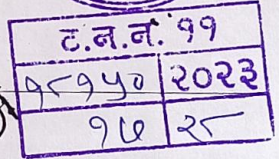 ट.न.न. ११
१८१५० २०२३
१७ २८